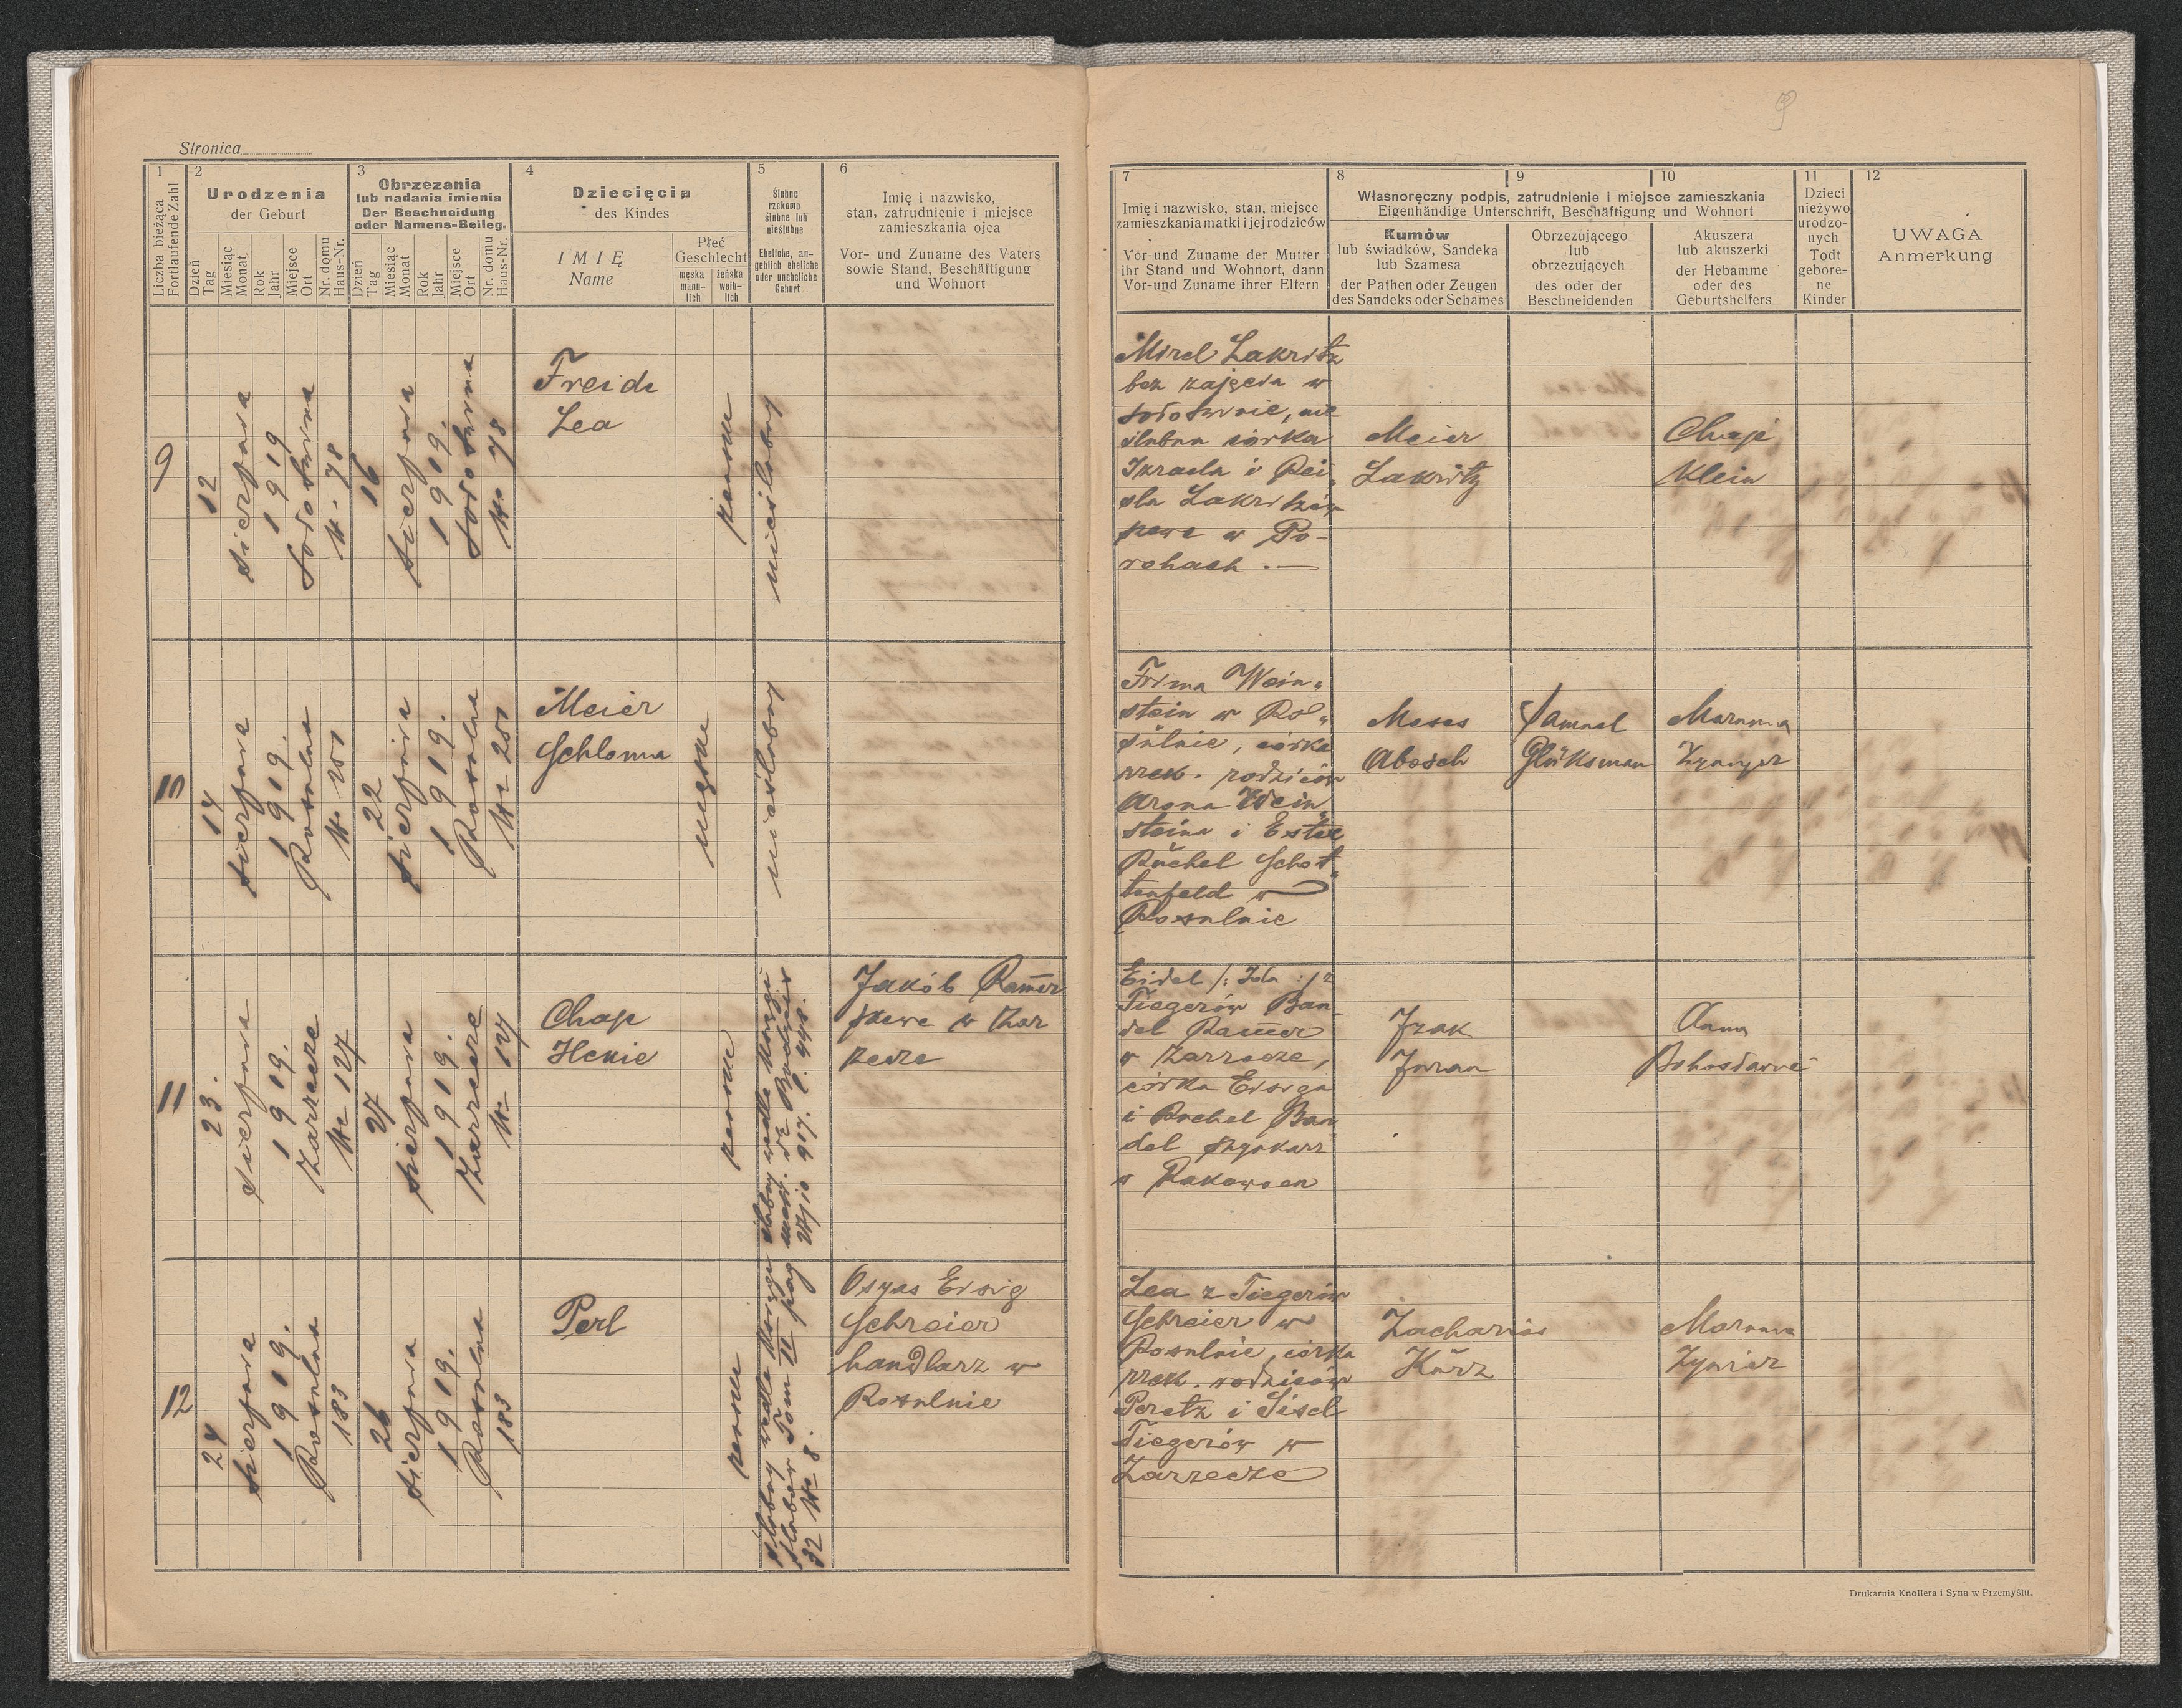 9
Stronica
1
Liczba bieżąca
Fortlaufende Zahl
2
Urodzenia
der Geburt
Dzień
Tag
Miesiąc
Monat
Rok
Jahr
Miejsce
Ort
Nr. domu
Haus-Nr.
3
Obrzezania
lub nadania imienia
Der Beschneidung
oder Namens-Beileg.
Dzień
Tag
Miesiąc
Monat
Rok
Jahr
Miejsce
Ort
Nr. domu
Haus-Nr.
4
Dziecięcia
des Kindes
IMIĘ
Name
Płeć
Geschlecht
męska
männ-
lich
żeńska
weib-
lich
5
Ślubne
rzekomo
ślubne lub
nieślubne
Eheliche, an-
geblich eheliche
oder uneheliche
Geburt
6
Imię i nazwisko,
stan, zatrudnienie i miejsce
zamieszkania ojca
Vor- und Zuname des Vaters
sowie Stand, Beschäftigung
und Wohnort
7
Imię i nazwisko, stan, miejsce
zamieszkania matki i jej rodziców
Vor-und Zuname der Mutter
ihr Stand und Wohnort, dann
Vor-und Zuname ihrer Eltern
8
9
10
Własnoręczny podpis, zatrudnienie i miejsce zamieszkania
Eigenhändige Unterschrift, Beschäftigung und Wohnort
Kumów
lub świadków, Sandeka
lub Szamesa
der Pathen oder Zeugen
des Sandeks oder Schames
Obrzezującego
lub
obrzezujących
des oder der
Beschneidenden
Akuszera
lub akuszerki
der Hebamme
oder des
Geburtshelfers
11
Dzieci
nieżywo
urodzo-
nych
Todt
gebore-
ne
Kinder
12
UWAGA
Anmerkung
9
12
sierpnia
1919
Sołotwina
Nr 78
16
sierpnia
1919.
Sołotwina
Nr 78
Freide
Lea
nieślubny
Mirel Lakritz
bez zajęcia w
Sołotwinie, nie
ślubna córka
Izraela i Rei
sla Lakritzów
w Po-
rohach .—
Meier
Lakritz
Chaje
Klein
10
14
sierpnia
1919.
Rosulna
Nr 201
22
sierpnia
1919.
Rosulna
Nr 201
Meier
Schloma
męska
nieślubny
Frima Wein„
stein w Ro„
sulnie, córka
rzek. rodziców
Arona Wein„
steina i Ester
Ruchel Schot„
tenfeld w
Rosulnie
Moses
Abosch
Samuel
Glüksman
Maryna
11
23.
sierpnia
1919.
Zarzecze
Nr 127
27
sierpnia
1919.
Zarzecze
Nr 127
Chaje
Henie
ślubny wedle księgi
Jakób Ramer
w Zar
zecze
Eidel /: Ida :/ z
Tiegerów Ban-
del Ramer
w Zarzecze,
córka Eisiga
i Rachel Ban
del
w Rakowcu
Izak
Juran
Anna
12
24
sierpnia
1919.
Rosulna
183
26
sierpnia
1919.
Rosulna
183
Perl
ślubny wedle księgi
ślubów Tom II pag
32 Nr 8.
Osyas Eisig
Schreier
handlarz w
Rosulnie
Lea z Tiegerów
Schreier w
Rosulnie, córka
rzek. rodziców
Peretz i Sisel
Tiegerów w
Zarzecze
Zacharias
Kürz
Maryna
Drukarnia Knollera i Syna w Przemyślu.